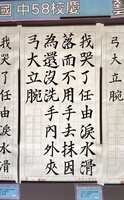 國中58校慶
弓大立腕
我哭了任由淚水滑
落而不用手去抹因
為還沒洗手內外夾
弓大立腕
我哭了任由淚水滑